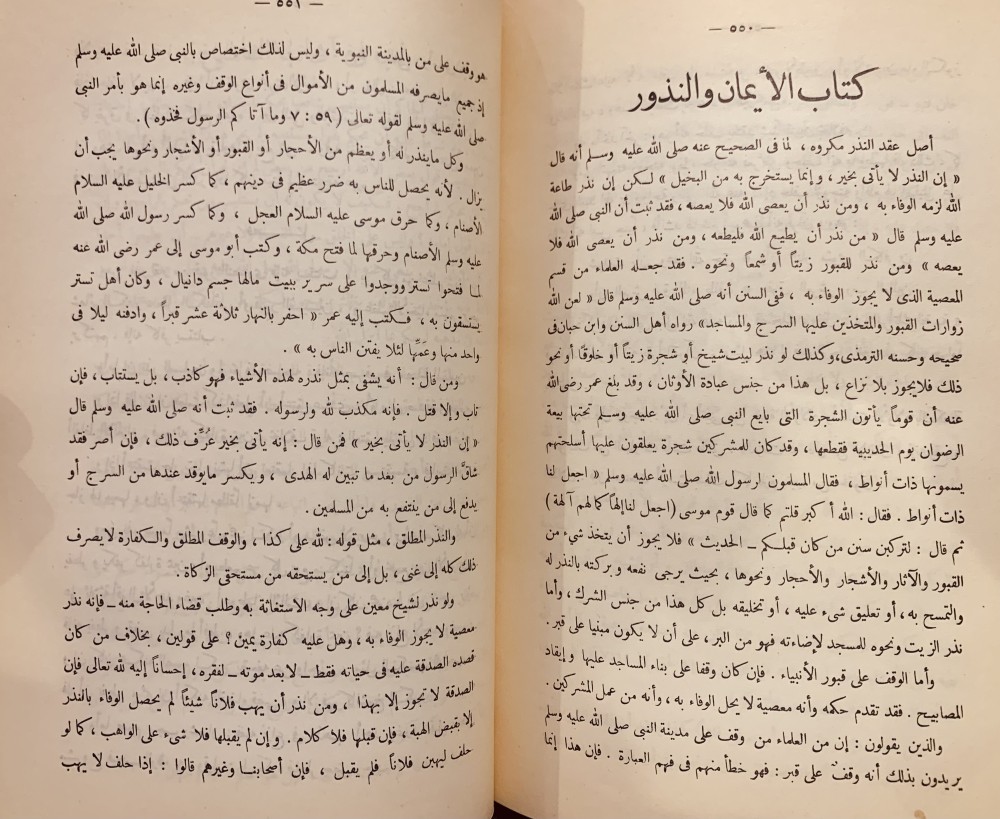 — ٥٥٠ —
كتاب الأيمان والنذور
أصل عقد النذر مكروه ، لما فى الصحيح عنه صلى الله عليه وسلم أنه قال
« إن النذر لا يأتى بخير ، وإنما يستخرج به من البخيل » لكن إن نذر طاعة
الله لزمه الوفاء به ، ومن نذر أن يعصى الله فلا يعصه ، فقد ثبت أن النبى صلى الله
عليه وسلم قال « من نذر أن يطيع الله فليطعه ، ومن نذر أن يعصى الله فلا
يعصه » ومن نذر للقبور زيتاً أو شمعاً ونحوه . فقد جعله العلماء من قسم
المعصية الذى لا يجوز الوفاء به ، ففى السنن أنه صلى الله عليه وسلم قال « لعن الله
زوارات القبور والمتخذين عليها السرج والمساجد » رواه أهل السنن وابن حبان فى
صحيحه وحسنه الترمذى ، وكذلك لو نذر لبيت شيخ أو شجرة زيتاً أو خلوقا أو نحو
ذلك فلا يجوز بلا نزاع ، بل هذا من جنس عبادة الأوثان ، وقد بلغ عمر رضى الله
عنه أن قوماً يأتون الشجرة التى بايع النبى صلى الله عليه وسلم تحتها بيعة
الرضوان يوم الحديبية فقطعها ، وقد كان للمشركين شجرة يعلقون عليها أسلحتهم
يسمونها ذات أنواط ، فقال المسلمون لرسول الله صلى الله عليه وسلم « اجعل لنا
ذات أنواط . فقال : الله أكبر قلتم كما قال قوم موسى ( اجعل لنا إلهاً كما لهم آلهة )
ثم قال : لتركبن سنن من كان قبلكم – الحديث » فلا يجوز أن يتخذ شىء من
القبور والآثار والأشجار والأحجار ونحوها ، بحيث يرجى نفعه وبركته بالنذر له
والتمسح به ، أو تعليق شىء عليه ، أو تخليقه بل كل هذا من جنس الشرك ، وأما
نذر الزيت ونحوه للمسجد لإضاءته فهو من البر ، على أن لا يكون مبنيا على قبر .
وأما الوقف على قبور الأنبياء . فإن كان وقفا على بناء المساجد عليها وإيقاد
المصابيح . فقد تقدم حكمه وأنه معصية لا يحل الوفاء به ، وأنه من عمل المشركين .
والذين يقولون : إن من العلماء من وقف على مدينة النبى صلى الله عليه وسلم
يريدون بذلك أنه وقفٌ على قبر : فهو خطأ منهم فى فهم العبارة . فإن هذا إنما
— ٥٥١ —
هو وقف على من بالمدينة النبوية ، وليس لذلك اختصاص بالنبى صلى الله عليه وسلم
إذ جميع مايصرفه المسلمون من الأموال فى أنواع الوقف وغيره إنما هو بأمر النبى
صلى الله عليه وسلم لقوله تعالى ( ٥٩ : ٧ وما آتاكم الرسول فخذوه ) .
وكل ماينذر له أو يعظم من الأحجار أو القبور أو الأشجار ونحوها يجب أن
يزال . لأنه يحصل للناس به ضرر عظيم فى دينهم ، كما كسر الخليل عليه السلام
الأصنام ، وكما حرق موسى عليه السلام العجل ، وكما كسر رسول الله صلى الله
عليه وسلم الأصنام وحرقها لما فتح مكة ، وكتب أبو موسى إلى عمر رضى الله عنه
لما فتحوا تستر ووجدوا على سرير ببيت مالها جسم دانيال ، وكان أهل تستر
يستسقون به ، فكتب إليه عمر « احفر بالنهار ثلاثة عشر قبراً ، وادفنه ليلا فى
واحد منها وعَمِّها لئلا يفتن الناس به » .
ومن قال : أنه يشفى بمثل نذره لهذه الأشياء فهو كاذب ، بل يستتاب ، فإن
تاب وإلا قتل . فإنه مكذب لله ولرسوله . فقد ثبت أنه صلى الله عليه وسلم قال
« إن النذر لا يأتى بخير » فمن قال : إنه يأتى بخير عُرِّف ذلك ، فإن أصر فقد
شاقَّ الرسول من بعد ما تبين له الهدى ، ويكسر مايوقد عندها من السرج أو
يدفع إلى من ينتفع به من المسلمين .
والنذر المطلق ، مثل قوله : لله على كذا ، والوقف المطلق والكفارة لا يصرف
ذلك كله إلى غنى ، بل إلى من يستحقه من مستحقى الزكاة .
ولو نذر لشيخ معين على وجه الاستغاثة به وطلب قضاء الحاجة منه – فإنه نذر
معصية لا يجوز الوفاء به ، وهل عليه كفارة يمين ؟ على قولين ، بخلاف من كان
قصده الصدقة عليه فى حياته فقط – لا بعد موته – لفقره ، إحساناً إليه لله تعالى فإن
الصدقة لا تجوز إلا بهذا ، ومن نذر أن يهب فلاناً شيئاً لم يحصل الوفاء بالنذر
إلا بقبض الهبة ، فإن قبلها فلا كلام . وإن لم يقبلها فلا شىء على الواهب ، كما لو
حلف ليهبن فلاناً فلم يقبل ، فإن أصحابنا وغيرهم قالوا : إذا حلف لا يهب